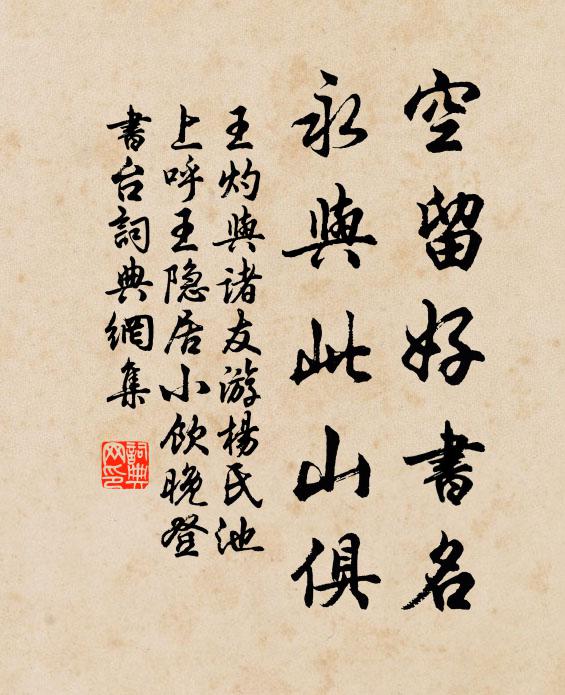 空留好書名
永與此山俱
王灼與諸友游楊氏池
上呼王隐居小飲晚登
書台詞典網集
詞典網印